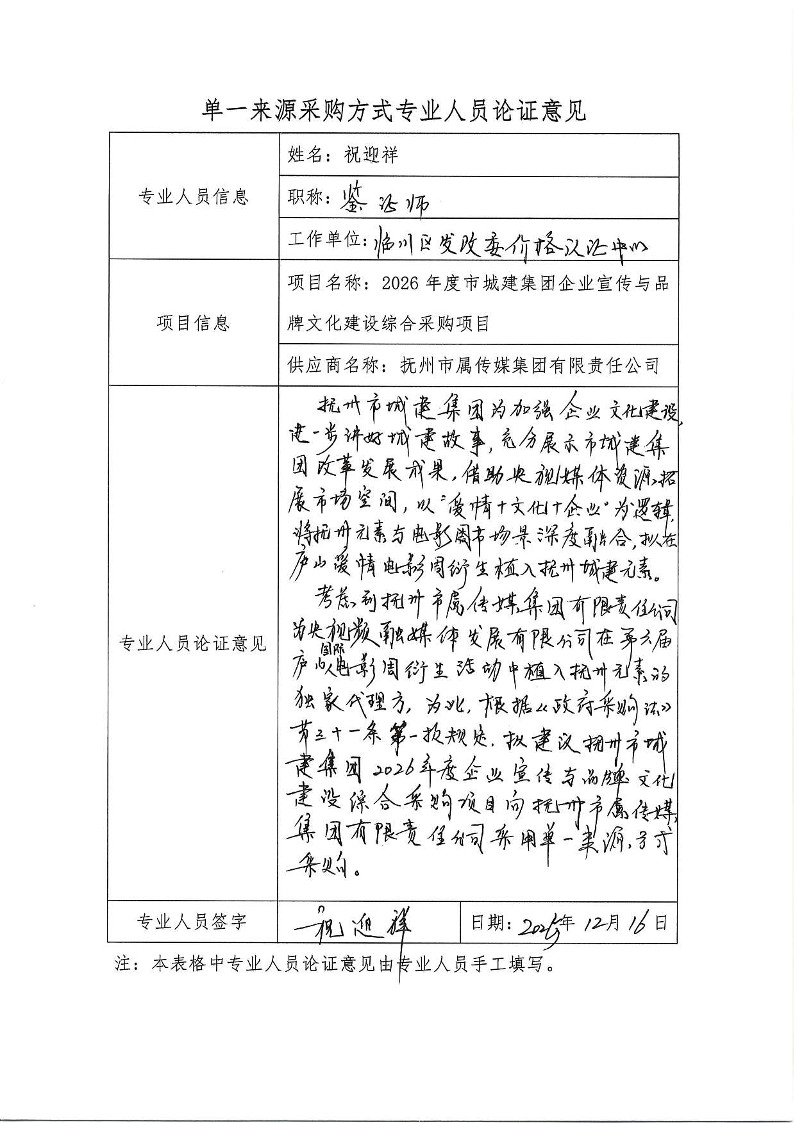 单一来源采购方式专业人员论证意见
专业人员信息
姓名：祝迎祥
职称：鉴证师
工作单位：临川区发改委价格认证中心
项目信息
项目名称：2026年度市城建集团企业宣传与品
牌文化建设综合采购项目
供应商名称：抚州市属传媒集团有限责任公司
专业人员论证意见
抚州市城建集团为加强企业文化建设，
进一步讲好城建故事，充分展示市城建集
团改革发展成果，借助央视媒体资源，拓
展市场空间，以“爱情+文化+企业”为逻辑，
将抚州元素与电影周市场景深度融合，拟在
庐山爱情电影周衍生植入抚州城建元素。
考虑到抚州市属传媒集团有限责任公司
为央视频融媒体发展有限公司在第六届
庐山国际电影周衍生活动中植入抚州元素的
独家代理方，为此，根据《政府采购法》
第三十一条第一项规定，拟建议抚州市城
建集团2026年度企业宣传与品牌文化
建设综合采购项目向抚州市属传媒
集团有限责任公司采用单一来源方式
采购。
专业人员签字
祝迎祥
日期：2025年12月16日
注：本表格中专业人员论证意见由专业人员手工填写。